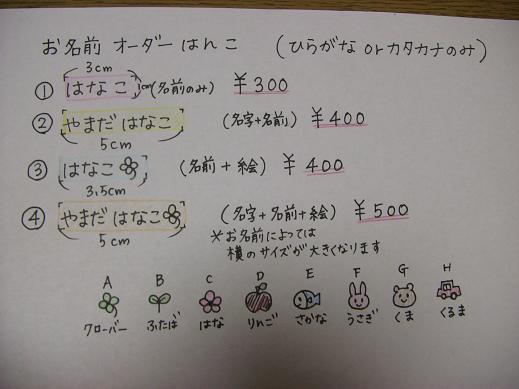 お名前 オーダー はんこ （ひらがな or カタカナのみ）
3cm
① はなこ 1cm （名前のみ） ￥300
② やまだ はなこ （名字＋名前） ￥400
5cm
③ はなこ （名前 ＋ 絵） ￥400
3.5cm
④ やまだ はなこ （名字＋名前＋絵） ￥500
5cm
※お名前によっては
横のサイズが大きくなります
A B C D E F G H
クローバー ふたば はな りんご さかな うさぎ くま くるま